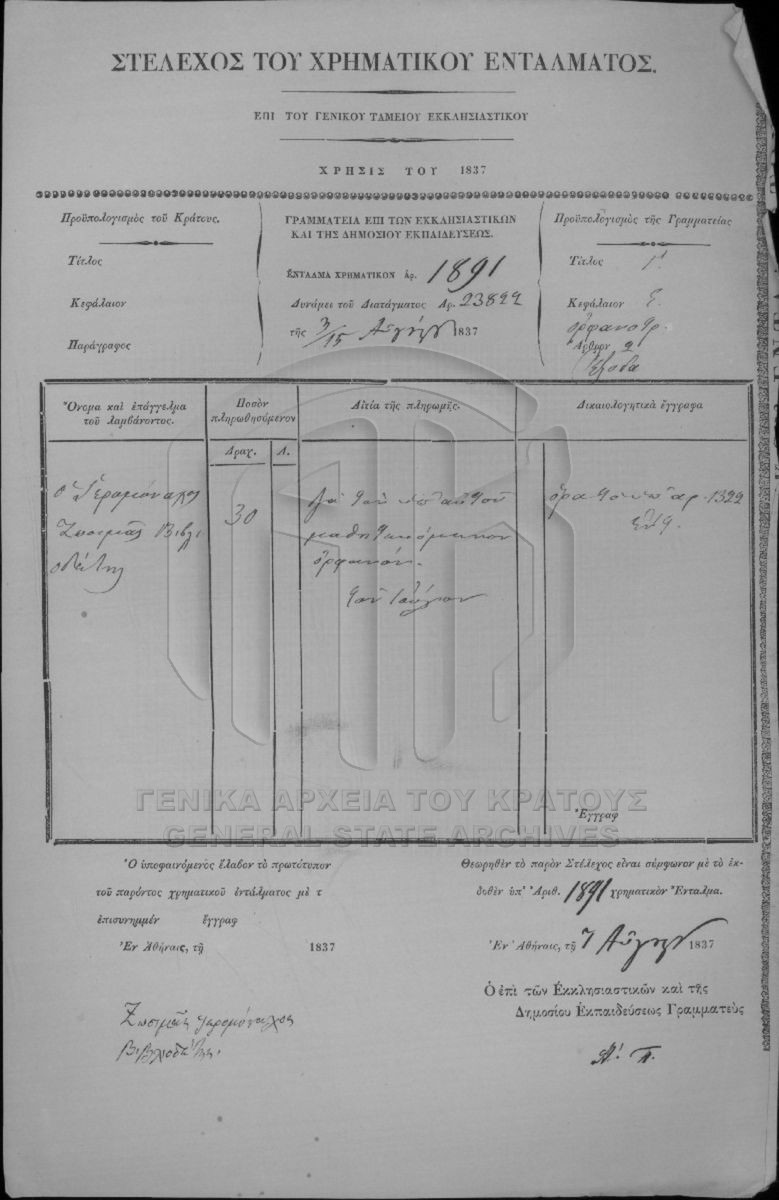 ΣΤΕΛΕΧΟΣ ΤΟΥ ΧΡΗΜΑΤΙΚΟΥ ΕΝΤΑΛΜΑΤΟΣ.
ΕΠΙ ΤΟΥ ΓΕΝΙΚΟΥ ΤΑΜΕΙΟΥ ΕΚΚΛΗΣΙΑΣΤΙΚΟΥ
ΧΡΗΣΙΣ ΤΟΥ 1837
Προϋπολογισμὸς τοῦ Κράτους.
Τίτλος
Κεφάλαιον
Παράγραφος
ΓΡΑΜΜΑΤΕΙΑ ΕΠΙ ΤΩΝ ΕΚΚΛΗΣΙΑΣΤΙΚΩΝ
ΚΑΙ ΤΗΣ ΔΗΜΟΣΙΟΥ ΕΚΠΑΙΔΕΥΣΕΩΣ.
ΕΝΤΑΛΜΑ ΧΡΗΜΑΤΙΚΟΝ ἀρ. 1891
Δυνάμει τοῦ Διατάγματος Ἀρ. 23822
τῆς 3/15 Αὐγούστ 1837
Προϋπολογισμὸς τῆς Γραμματείας
Τίτλος Γ'.
Κεφάλαιον Ε.
ὀρφανοτρ.
Ἄρθρον 2
Ἔξοδα
Ὄνομα καὶ ἐπάγγελμα
τοῦ λαμβάνοντος.
Ποσὸν
πληρωθησόμενον
Δραχ. Λ.
Αἰτία τῆς πληρωμῆς.
Δικαιολογητικὰ ἔγγραφα
ὁ Ἱερομόναχος
Ζωσιμᾶς Βιβλι
οδέτης
30
διὰ τὸν ὑπ' αὐτοῦ
μαθητευόμενον
ὀρφανόν.
τὸν Ἰούλιον
ὅρα τὸ ὑπ' ἀρ. 1322
Ἔγγραφ
ΓΕΝΙΚΑ ΑΡΧΕΙΑ ΤΟΥ ΚΡΑΤΟΥΣ
GENERAL STATE ARCHIVES
Ὁ ὑποφαινόμενος ἔλαβον τὸ πρωτότυπον
τοῦ παρόντος χρηματικοῦ ἐντάλματος μὲ τ
ἐπισυνημμέν ἔγγραφ
Ἐν Ἀθήναις, τῇ 1837
Ζωσιμᾶς ἱερομόναχος
Βιβλιοδέτης.
Θεωρηθὲν τὸ παρὸν Στέλεχος εἶναι σύμφωνον μὲ τὸ ἐκ-
δοθὲν ὑπ' Ἀριθ. 1891 χρηματικὸν Ἔνταλμα.
Ἐν Ἀθήναις, τῇ 7 Αὐγούστ 1837
Ὁ ἐπὶ τῶν Ἐκκλησιαστικῶν καὶ τῆς
Δημοσίου Ἐκπαιδεύσεως Γραμματεὺς
Α'. Π.